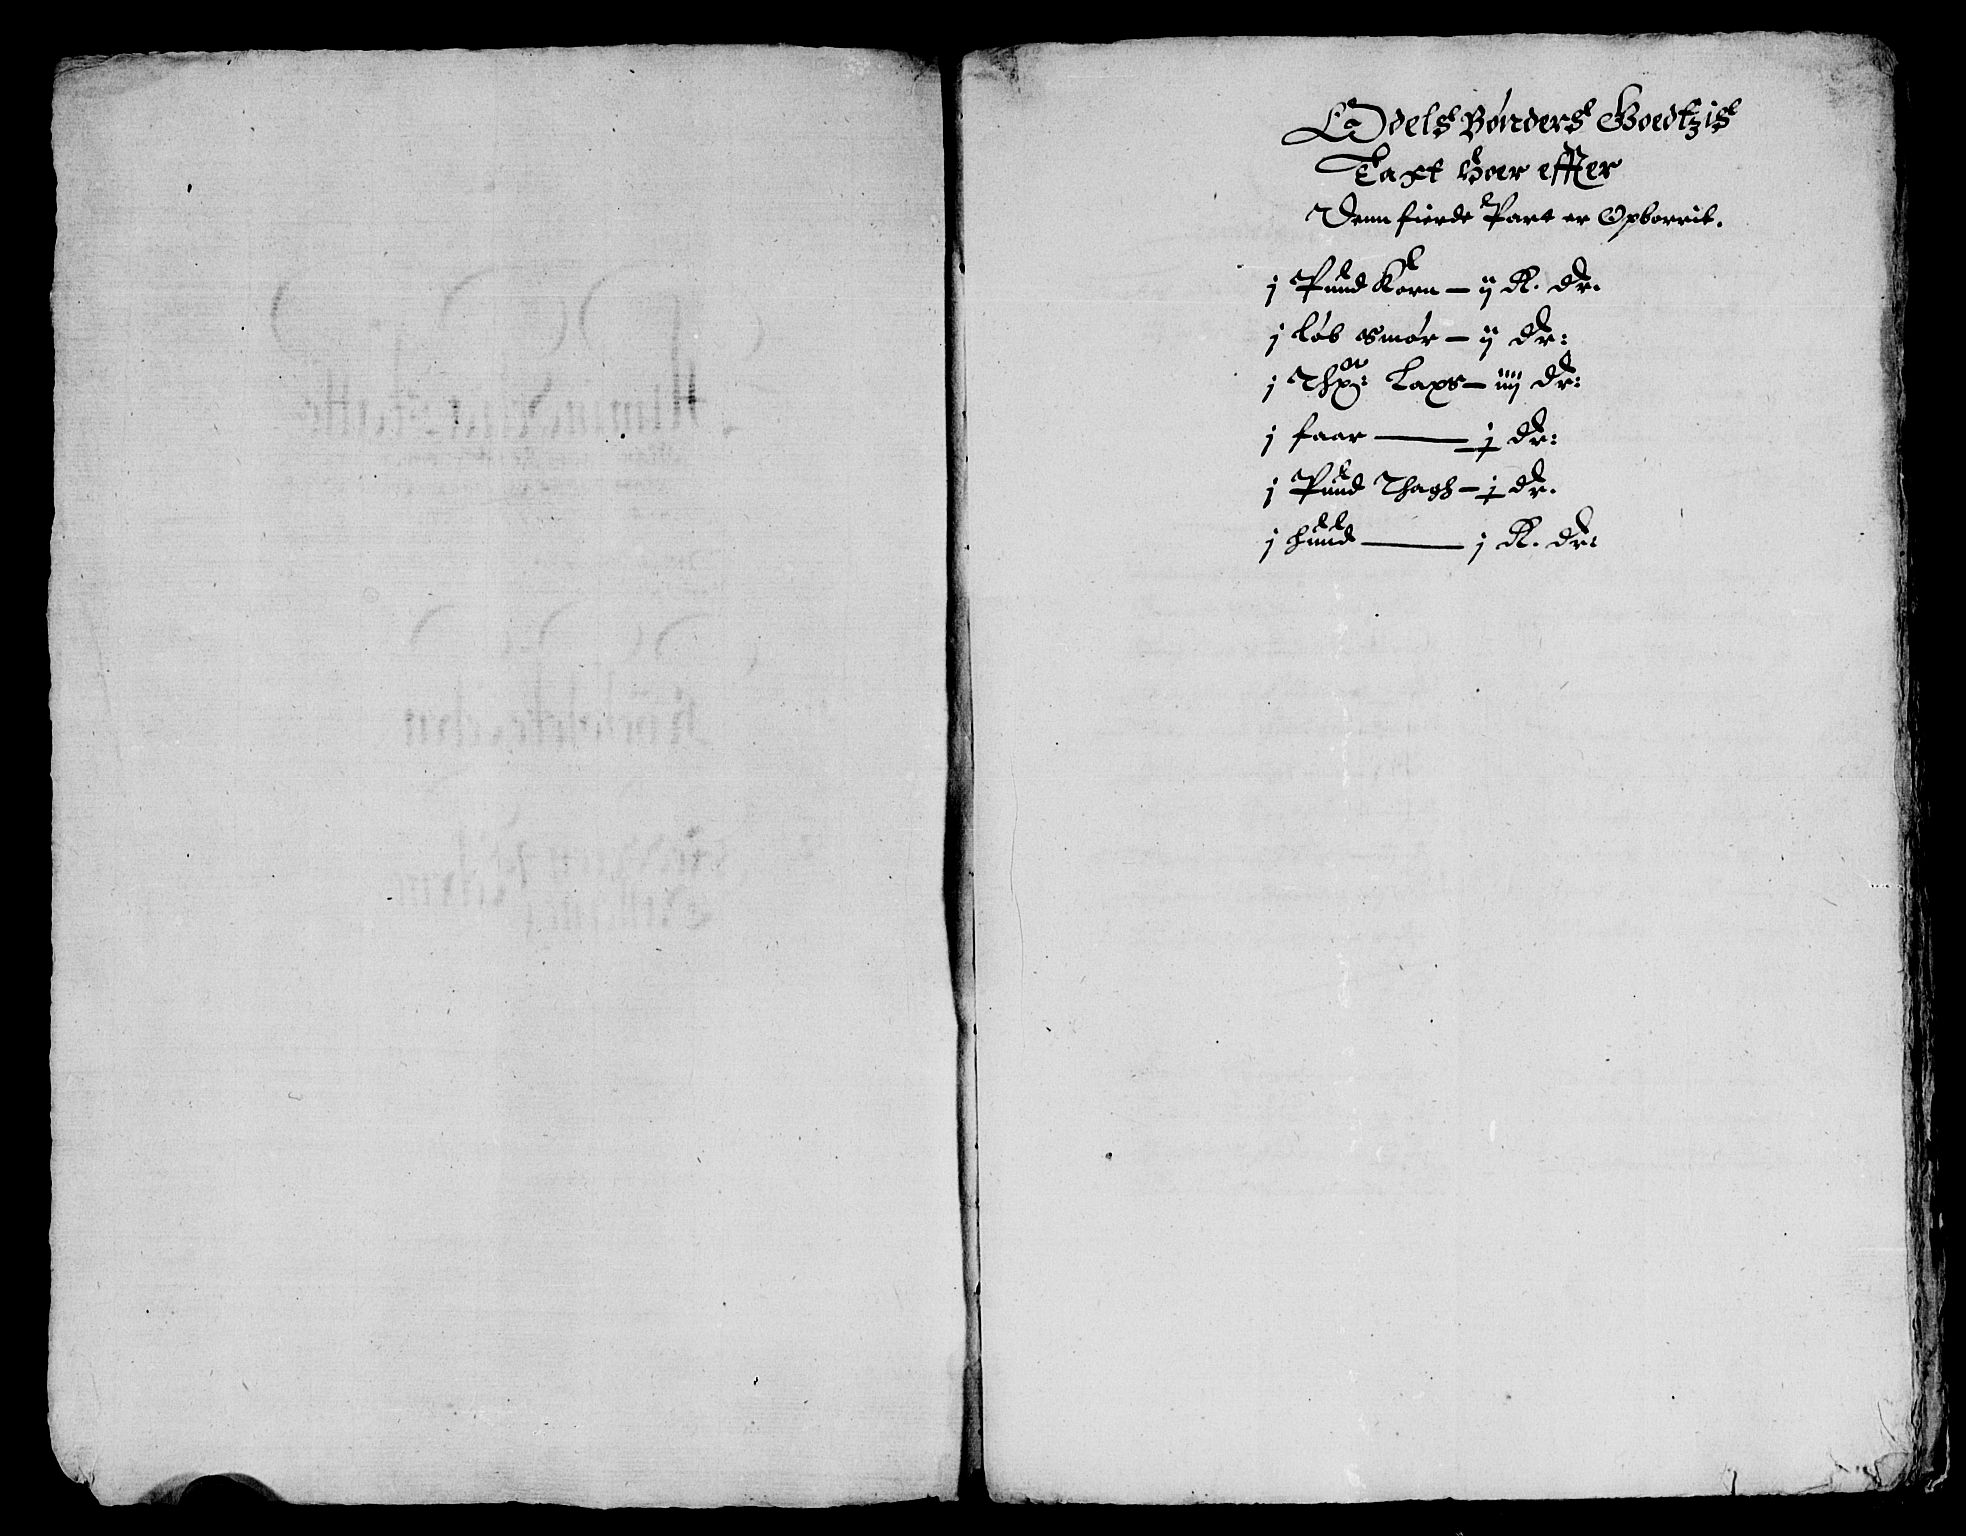 Odels Bønders Goedtzis
Taxt Huor effter
Denn fierde Part er Opborrit.
j Pund Korn — ij R. dr.
j løb smør — ij dr:
j Thøn: Laxs — iiij dr:
j faar — j dr:
j Pund Thagh — j dr.
j hund — j R. dr: